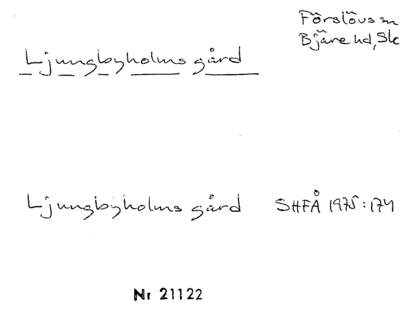 Förslövs sn
Bjäre hd, Sk
Ljungbyholms gård
Ljungbyholms gård SHFÅ 1975:174
Nr 21122